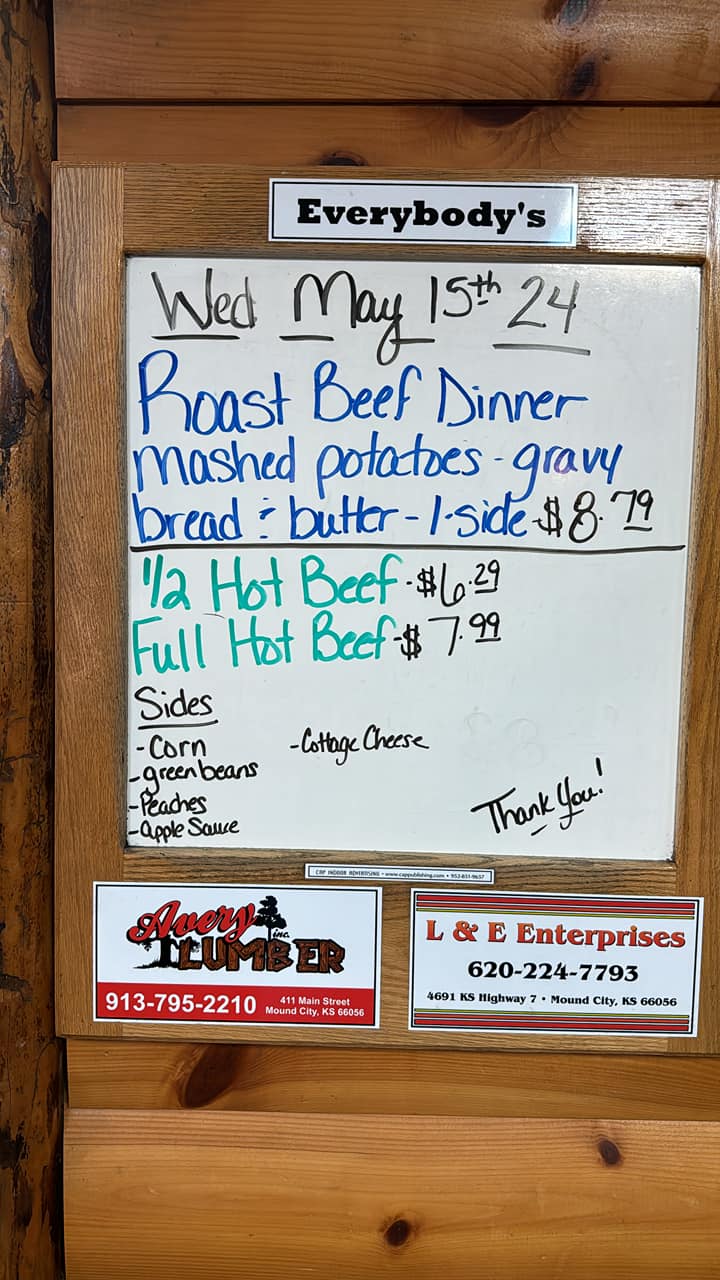 Everybody's
Wed May 15th 24
Roast Beef Dinner
mashed potatoes - gravy
bread & butter - 1-side $8.79
1/2 Hot Beef - $6.29
Full Hot Beef - $7.99
Sides
- Corn
- green beans
- Peaches
- apple Sauce
- Cottage Cheese
Thank You!
CAP INDOOR ADVERTISING • www.cappublishing.com • 952-851-9657
Avery inc.
LUMBER
913-795-2210
411 Main Street
Mound City, KS 66056
L & E Enterprises
620-224-7793
4691 KS Highway 7 • Mound City, KS 66056